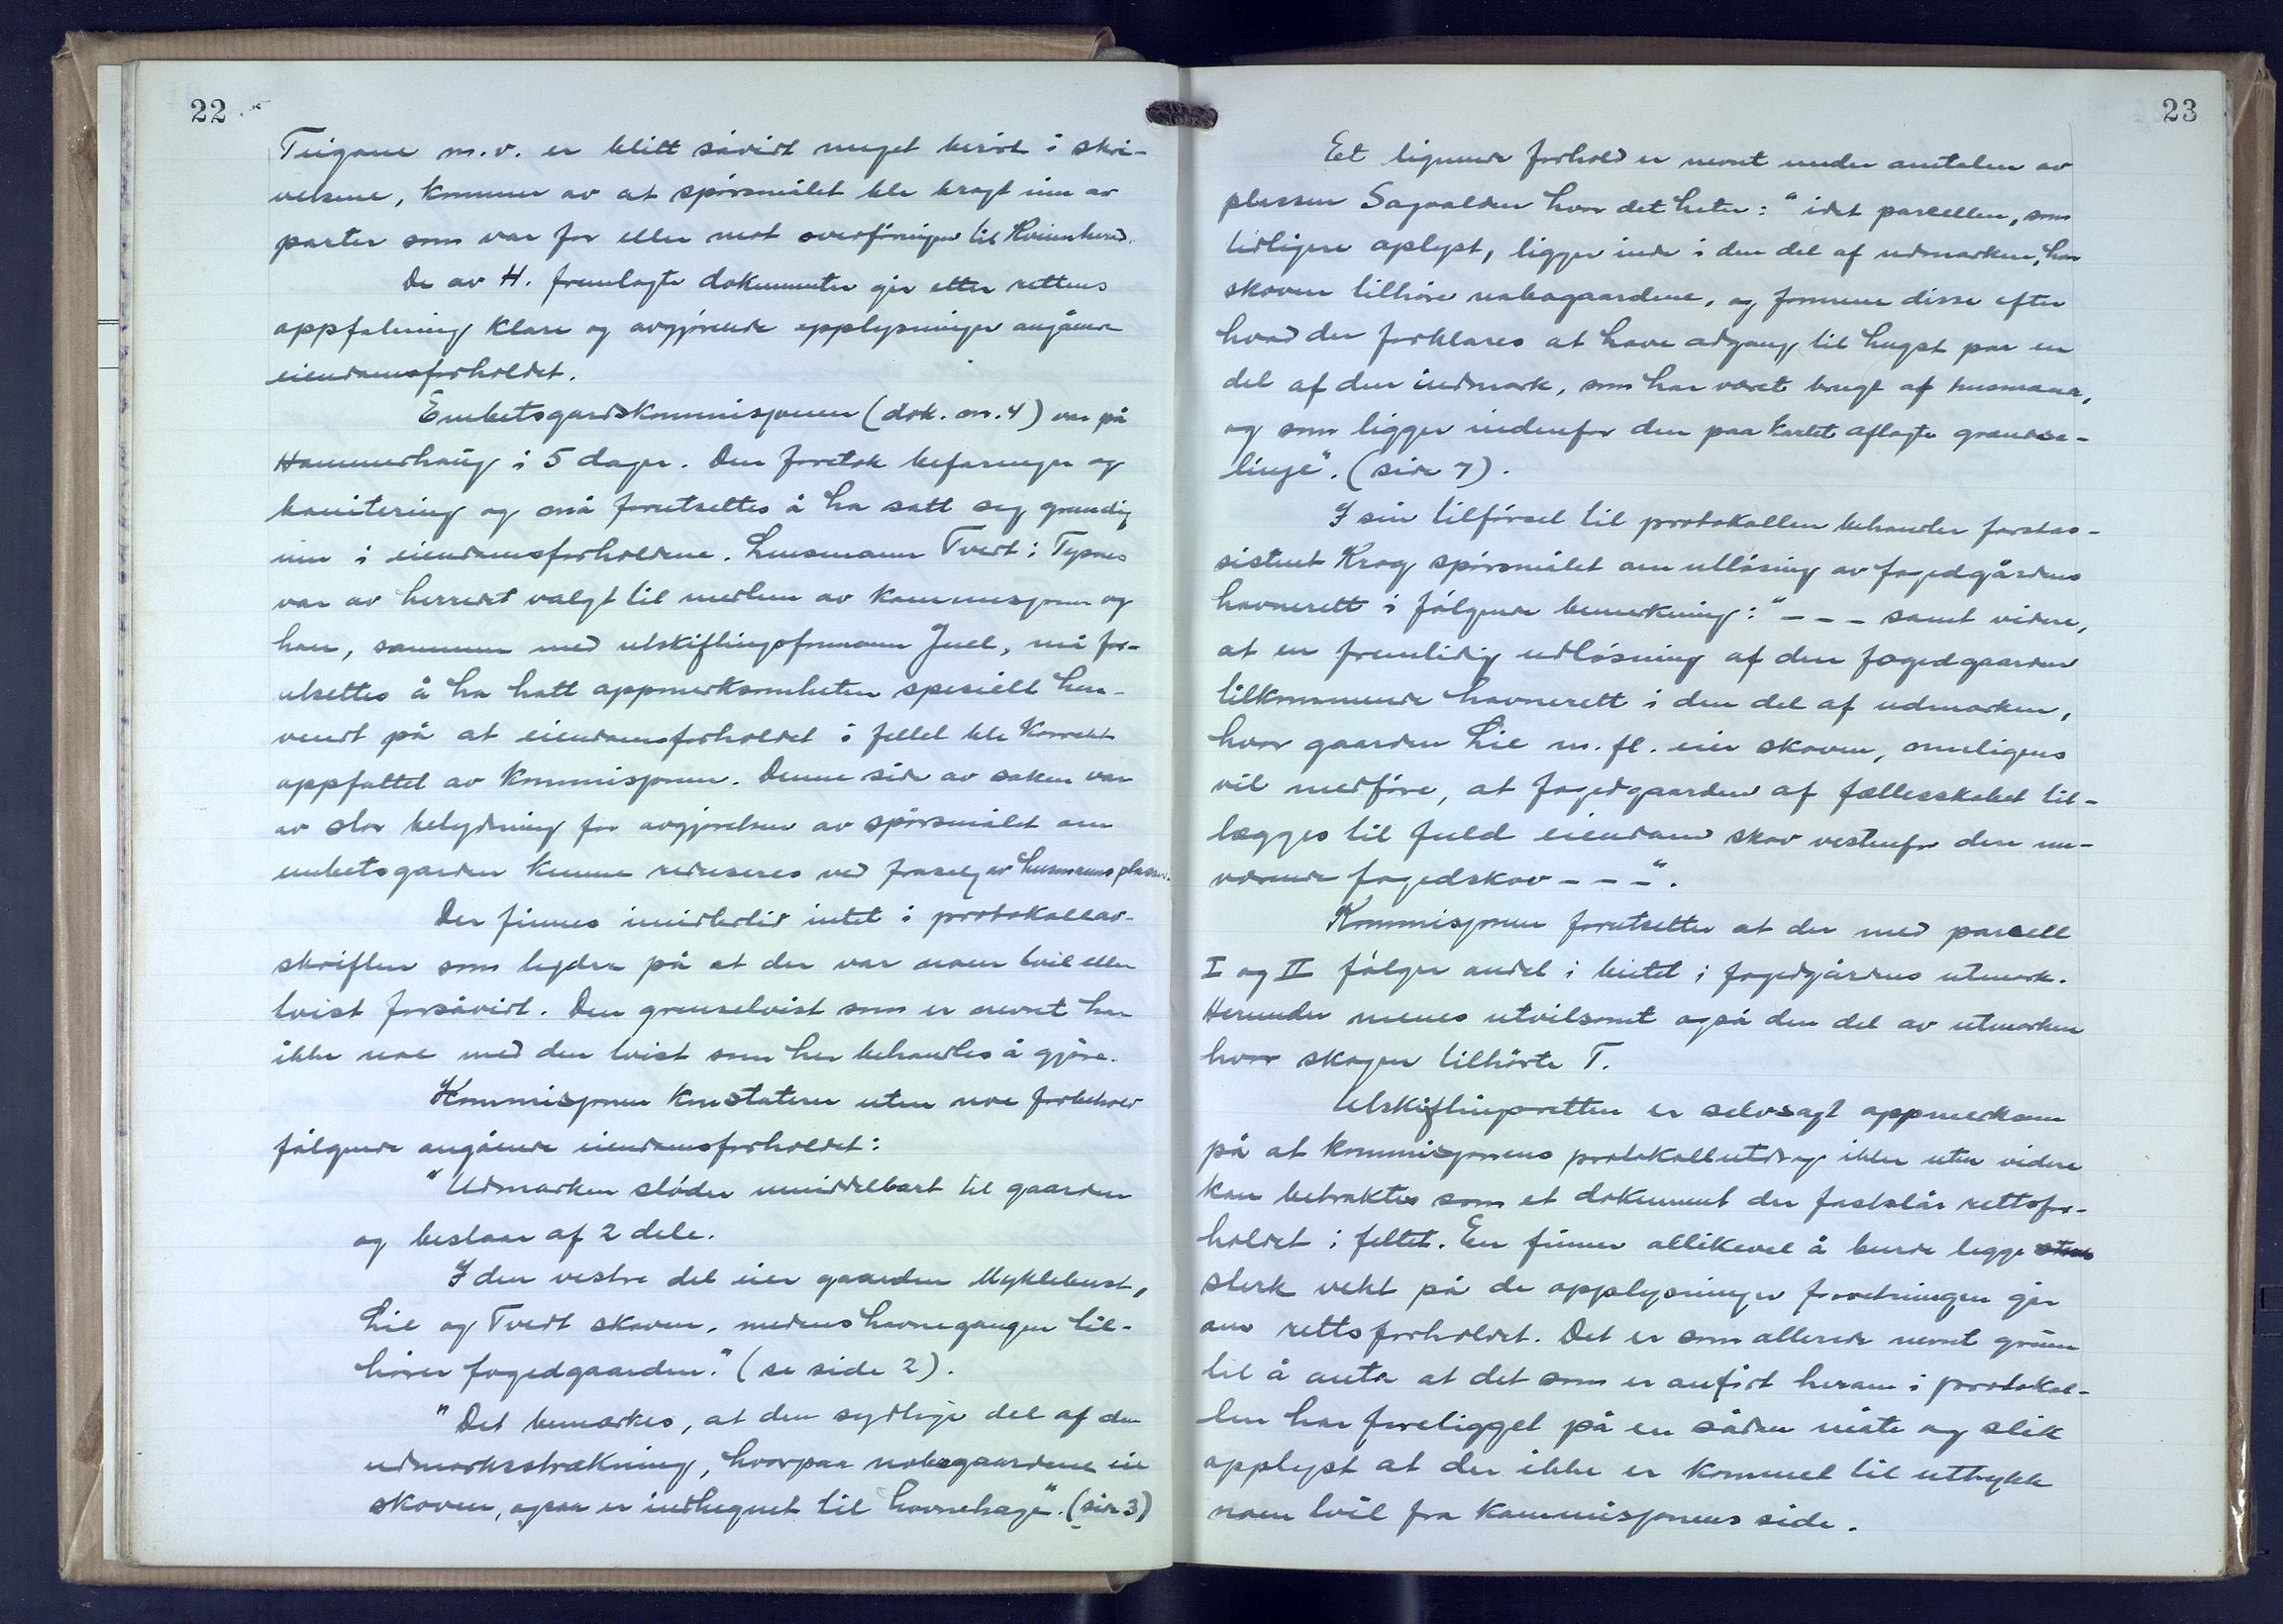 22
Teigane m.v. er blitt såvidt meget berört i skri-
velsene, kommer av at spörsmålet ble bragt inn av
parter som var for eller mot overföringen til Kvinnherad.
De av H. fremlagte dokumenter gir etter rettens
oppfatning klare og avgjörende opplysninger angående
eiendomsforholdet.
Embetsgårdskommisjonen (dok. nr. 4) var på
Hammerhaug i 5 dager. Den foretok befaringer og
bonitering og må forutsettes å ha satt seg grundig
inn i eiendomsforholdene. Lensmann Tvedt i Tysnes
var av herredet valgt til medlem av kommisjonen og
han, sammen med utskiftningsformann Juel, må for-
utsettes å ha hatt oppmerksomheten spesielt hen-
vendt på at eiendomsforholdet i feltet ble korrekt
oppfattet av kommisjonen. Denne side av saken var
av stor betydning for avgjörelsen av spörsmålet om
embetsgarden kunne reduseres ved frasalg av husmannsplasser.
Der finnes imidlertid intet i protokollav-
skriften som tyder på at der var noen tvil eller
tvist forsåvidt. Den grensetvist som er nevnt har
ikke noe med den tvist som her behandles å gjöre.
Kommisjonen konstaterer uten noe forbehold
fölgende angående eiendomsforholdet:
"Udmarken stöder umiddelbart til gaarden
og bestaar af 2 dele.
I den vestre del eier gaarden Myklebust,
Lie og Tvedt skoven, medens havnegangen til-
hörer fogedgaarden." (se side 2).
"Det bemærkes, at den sydlige del af den
udmarksstrækning, hvorpaa nabogaardene eie
skoven, ogsaa er indhegnet til havnehage". (side 3)
23
Et lignende forhold er nevnt under omtalen av
plassen Sagvolden hvor det heter: "idet parcellen, som
tidligere oplyst, ligger inde i den del af udmarken, hvor
skoven tilhöre nabogaardene, og formene disse efter
hvad der forklares at have adgang til hugst paa en
del af den indmark, som har været brugt af husmann,
og som ligger indenfor den paa kartet aflagte grændse-
linje". (side 7).
I sin tilförsel til protokollen behandler forstas-
sistent Krag spörsmålet om utlösing av fogedgårdens
havnerett i fölgende bemerkning: "--- samt videre,
at en fremtidig udlösning af den fogedgaarden
tilkommende havnerett i den del af udmarken,
hvor gaarden Lie m. fl. eier skoven, muligens
vil medföre, at fogedgaarden af fællesskabet til-
lægges til fuld eiendom skov vestenfor den nu-
værende fogedskov ---".
Kommisjonen forutsetter at der med parcell
I og II fölger andel i beitet i fogedgårdens utmark.
Herunder menes utvilsomt også den del av utmarken
hvor skogen tilhörte T.
Utskiftningsretten er selvsagt oppmerksom
på at kommisjonens protokollutdrag ikke uten videre
kan betraktes som et dokument der fastslår rettsfor-
holdet i feltet. En finner allikevel å burde legge
sterk vekt på de opplysninger forretningen gir
om rettsforholdet. Det er som allerede nevnt grunn
til å anta at det som er anfört herom i protokol-
len har foreligget på en sådan måte og slik
opplyst at der ikke er kommet til uttrykk
noen tvil fra kommisjonens side.